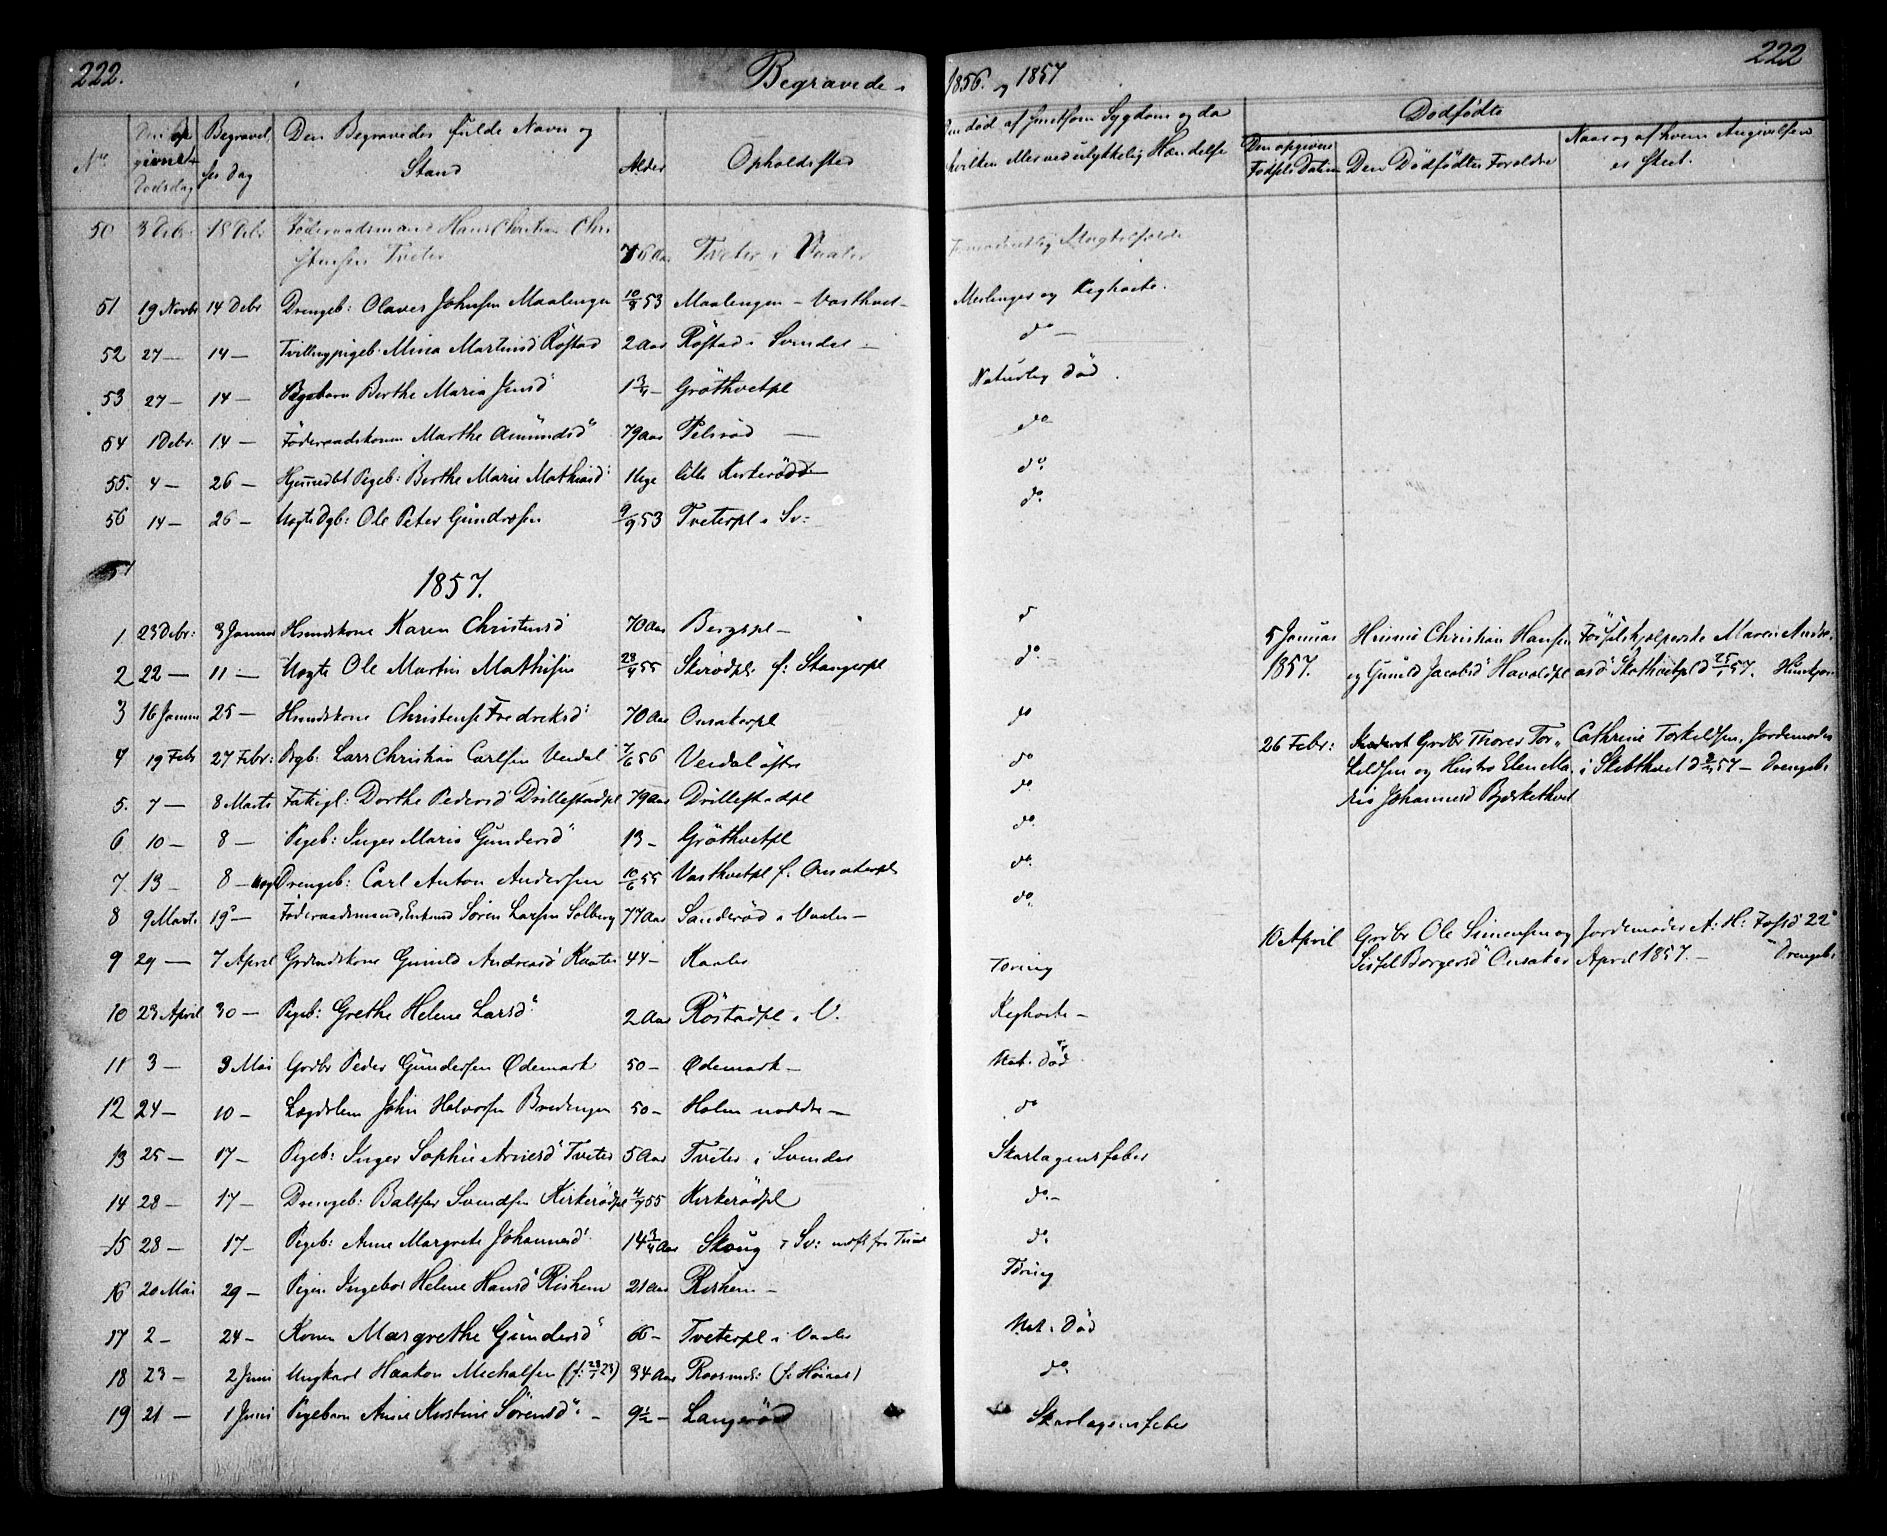 222.
Begravede
No
Den opgivne Dødsdag
Begravelses Dag
Den Begravedes fulde Navn og Stand
Alder
Opholdssted
50 3 Debr. 18 Debr Føderaadsmand Hans Christian Christensen Tveter 76 Aar Tveter i Vaaler
51 19 Novbr 14 Debr Drengeb: Olaves Johnsen Maalengen 10/8 53 Maalengen
52 27 — 14 — Tvillingpigeb. Mina Martinsd Røstad 2 Aar Røstad i Svindal
53 27 — 14 — Berthe Maria Jensd 1 3/4 — Grøthvetpl
54 1 Debr. 14 — Føderaadskonen Marthe Amundsd 79 Aar Pelsrød —
55. 4 — 26 — Hjemedbt Pigeb: Berthe Marie Mathiasd: 1 Uge lille Kirkerød
56 14 — 26 — Uægte Dgb: Ole Peter Gundersen 9/9 53 Tveterpl i Sv:
1857.
1. 23 Debr: 3 Januar Huusmdskone Karen Christensd 70 Aar Bergspl —
2 22 — 11 — Uægte Ole Martin Mathisen 28/4 55 f: Stangerpl
3 16 Januar 25 — Christense Fredreksd 70 Aar Onsakerpl
4 19 Febr 27 Febr: Dgb: Lars Christian Carlsen Verdal 7/6 56 Verdal østre
5. 7 — 8 Marts Fatigl: Dorthe Pedersd Drillestadpl 79 Aar Drillestadpl
6 10 — 8 — Pigeb: Inger Maria Gundersd 13 — Grøthvetpl
7. 13 — 8 — Uægt Drengeb: Carl Anton Andersen 10/6 55 Vasthvetpl f: Onsakerpl
8 9 Marts 19 — Føderaadsmand, Enkemd Søren Larsen Solberg 77 Aar Sanderød i Vaaler —
9 29 — 7 April Grdmdskone Gunild Andreasd Kaater 44 — Kaater
10 23 April 30 — Pigeb: Grethe Helene Larsd: 2 Aar Røstadpl i V.
11 3 — 3 Mai Grdbr Peder Gundersen Ødemark 50 — Ødemark —
12 24 — 10 — Lægdslem John Halvorsen Bredengen 50 — Holm nordre —
13 25 — 17 — Pigeb: Inger Sophie Arnesd Tveter 5 Aar Tveter i Svindal
14 28 — 17 — Drengeb: Baltser Svendsen Kirkerødpl 4/7 55 Kirkerødpl
15 28 — 17 — Pigeb: Anne Margrete Johannesd: 14 3/4 Aar Skoug i Sv:
16 20 Mai 29 — Pigen Ingebor Helene Hansd Risheim 21 Aar Risheim —
17 2 — 24 — Konen Margrethe Gundersd 66 — Tveterpl i Vaaler
18 23 — 2 Juni Ungkarl Haakon Michalsen (f: 28/1 23) 34 Aar
19 21 — 1 Juni Pigebarn Anne Kirstine Sørensd: — 9 1/2 — Langerød
1856. og 1857
222
Om død af smitsom Sygdom og da hvilken eller ved ulykkelig Hændelse
Dødfødte
Den opgivne Fødsels Datum
Den Dødfødtes Forældre
Naar og af hvem Angivelsen er skeet.
Meslinger og Kighoste.
do —
Naturlig død.
do
do.
do.
do.
do
do
do
do.
do.
do.
Tæring
Kighoste —
Nat. Død
do
Skarlagensfeber
do. —
do.
Tæring
Nat. Død
do.
Skarlagensfeber
5 Januar 1857. Christian Hansen og Gunild Jacobsd Havoldpl
Fødselshjelperske Maren Andreasd Skothvetpl d 25/1 57.
26 Febr: Grdbr Thores Torkildsen og Hustro Elen Maria Johannesd
Cathrine Torkeldsen, Jordemoder i Skibthvet d 57 — Drengeb:
10 April Grdbr Ole Simensen og Sissel Borgersd Onsaker
Jordemoder A: H: 22 April 1857. — Drengeb: